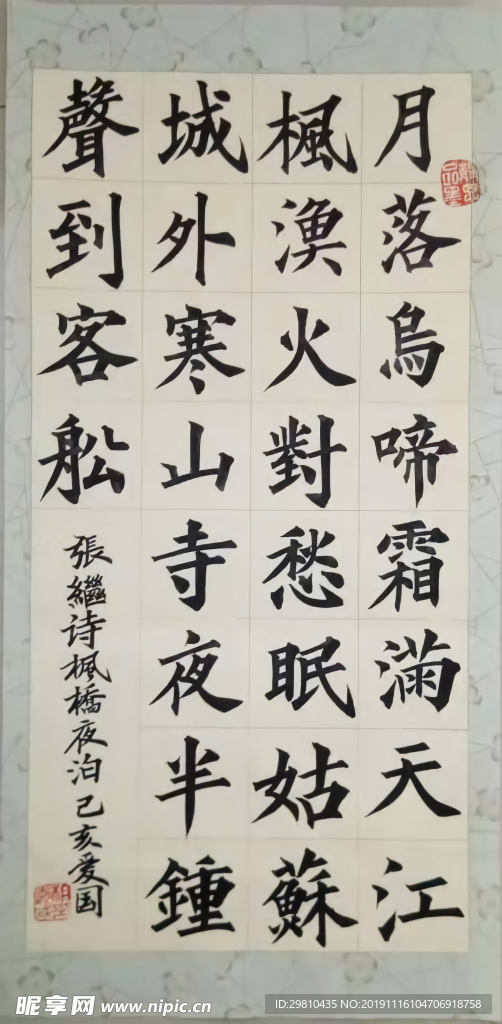 月落烏啼霜滿天江
楓漁火對愁眠姑蘇
城外寒山寺夜半鍾
聲到客船
張繼诗楓橋夜泊己亥爱国
昵享网 www.nipic.cn
ID:29810435 NO:20191116104706918758